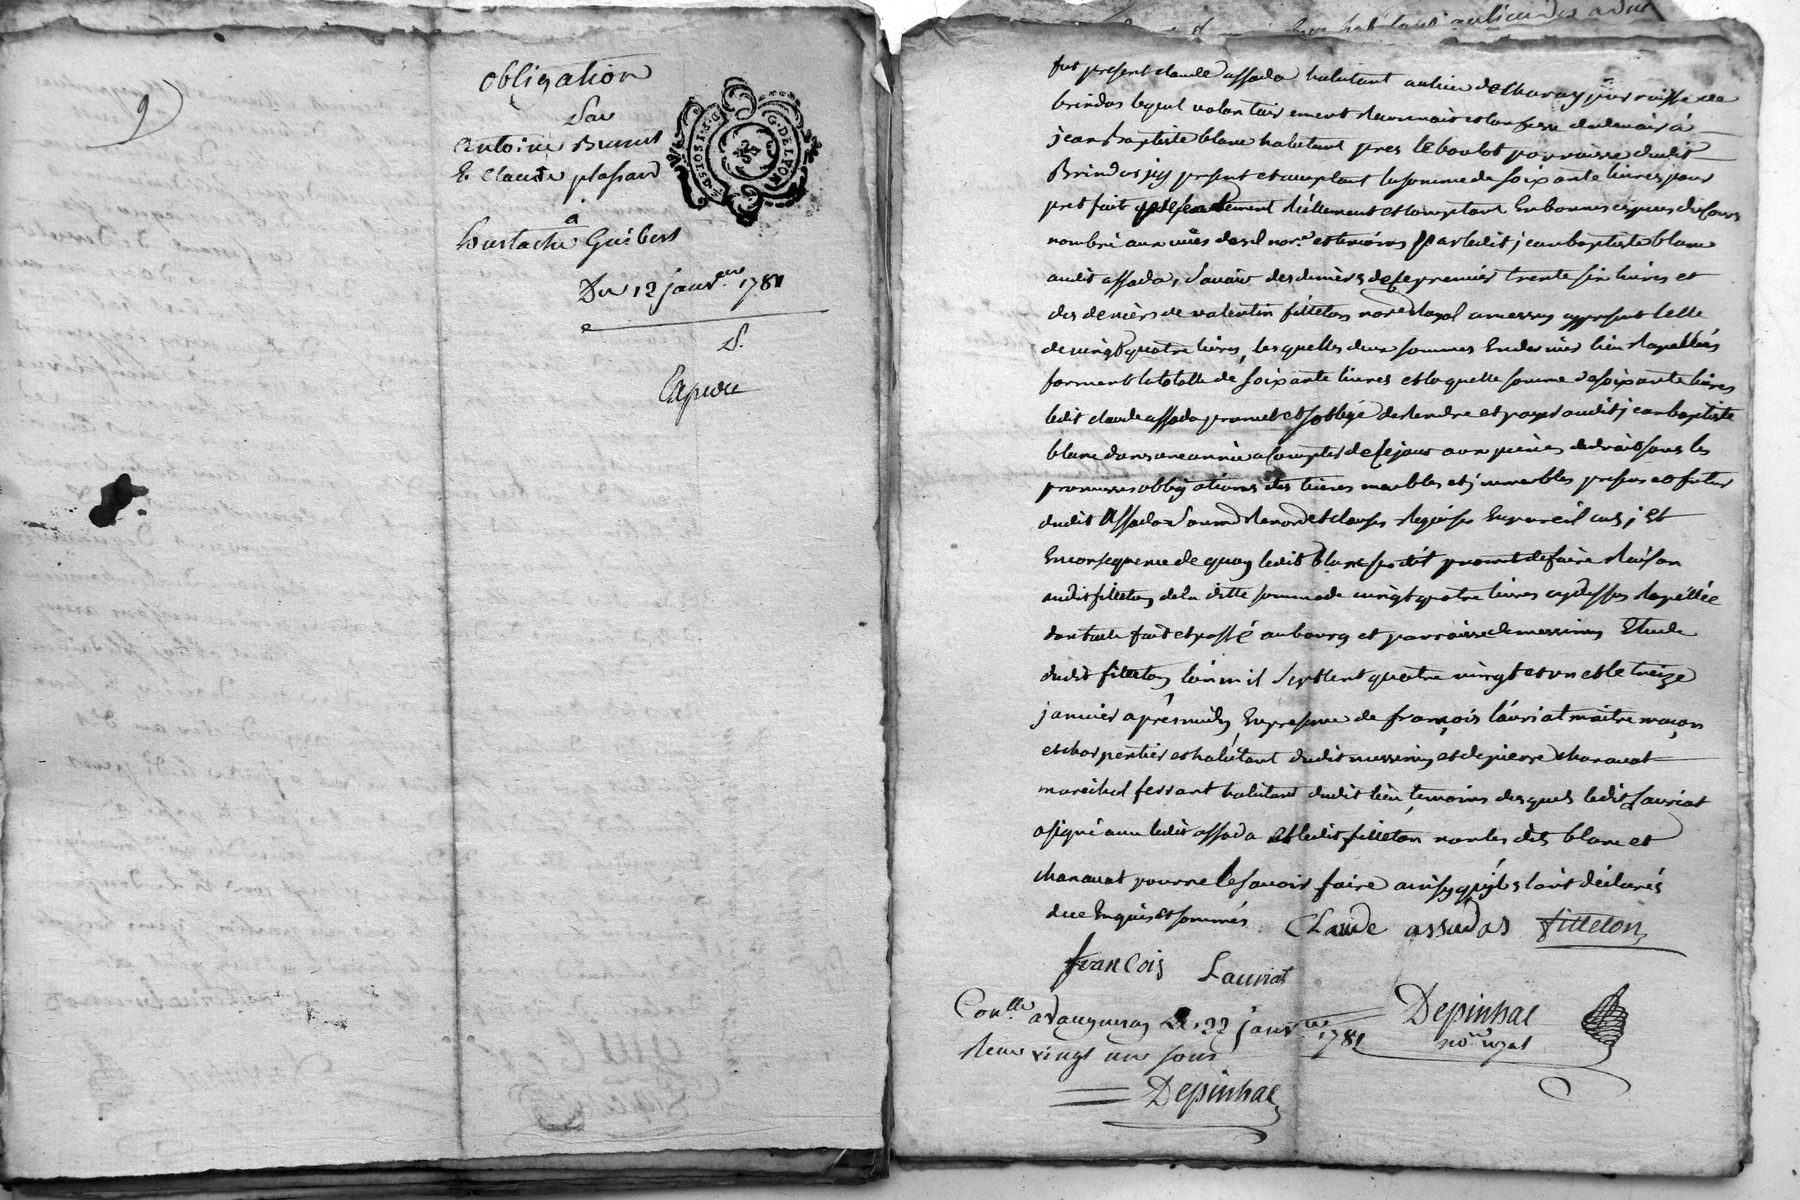 9)
obligation
Par
antoine Brunet
& claude plasard
a
Eustache Guibert
Du 12 janv.er 1781
S.
Expediée
G. DE LYON
2. S. DIX SOLS P. F.
fut present claude assada habitant au lieu de charay parroisse de
brindas lequel volontairement reconnait et confesse devoir à
jean baptiste blanc habitant pres le boulot parroisse dudit
Brindas icy present et acceptant la somme de soixante livres pour
pret fait presentement réellement et comptant En bonnes especes du cours
nombré aux vües desd. nor.e et temoins par ledit jean baptiste blanc
audit assada, Savoir des deniers de ce premier trente six livres et
des deniers de valentin filleton nore Royal a messimy apresent celle
de vingt quatre livres, lesquelles deux sommes En dernier lieu Rapellées
forment la totalle de soixante livres et laquelle somme de soixante livres
ledit claude assada promet et s'oblige de Rendre et payer audit jean baptiste
blanc dans une année a compter de ce jour aux peines de droit sous les
promesses obligations des biens meubles et immeubles presens et futur
dudit Assada Soumon Renon et clauses Requises En pareil cas, Et
En consequence de quoy ledit blanc susdit promet de faire Raison
audit filleton de la ditte somme de vingt quatre livres cy dessus Rapellée
dont acte fait et passé au bourg et parroisse de messimy Etude
dudit filleton l'an mil sept cent quatre vingt et un et le treize
janvier après midy En presence de françois lauriat maitre maçon
et charpentier et habitant dudit messimy et de pierre charavat
maréchal ferrant habitant dudit lieu temoins desquels ledit Lauriat
a signé avec ledit assada et ledit filleton non lesdits blanc et
charavat pour ne le savoir faire ainsy qu'ils l'ont déclarés
de ce Enquis et sommés
Claude assadas filleton
francois Lauriat
Con.lle a vaugneray le 22 janv.er 1781
Recu vingt un sous
Depinhac
no.re royal
Depinhac